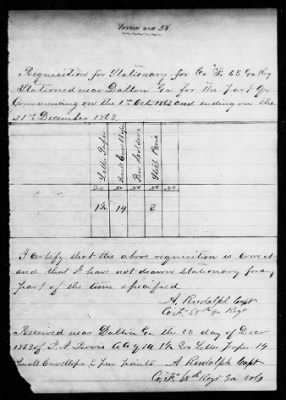 Form no 38
Requisition for Stationary, for Co "F" 65 Ga Reg
Stationed near Dalton Ga for the Part Qr
Commencing on the 1st Oct 1863 and ending on the
31st December 1863.
Letter Paper
Small Envellopes
Pen holders
Steel Pens
Qrs No No No No
1½ 14 2
I certify that the above requisition is correct
and that I have not drawn stationary for any
part of the time specified
A. Rudolph Capt
Co "F" 65th Ga Regt
Received near Dalton Ga the 23 day of Decr
1863 of A.Q.M. 1½ Qrs Letter Paper 14
Small Envellopes 2 pen points A. Rudolph Capt
Co "F" 65th Regt Ga Vols